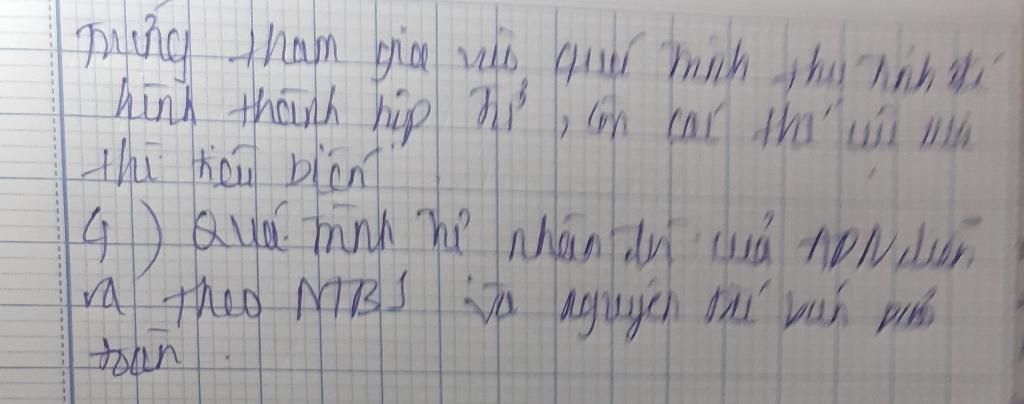 trứng tham gia vào quá trình thụ tinh để
hình thành hợp tử, còn các thể cực
thì tiêu biến.
4) Quá trình tự nhân đôi của ADN diễn
ra theo NTBS và nguyên tắc bán bảo
toàn.